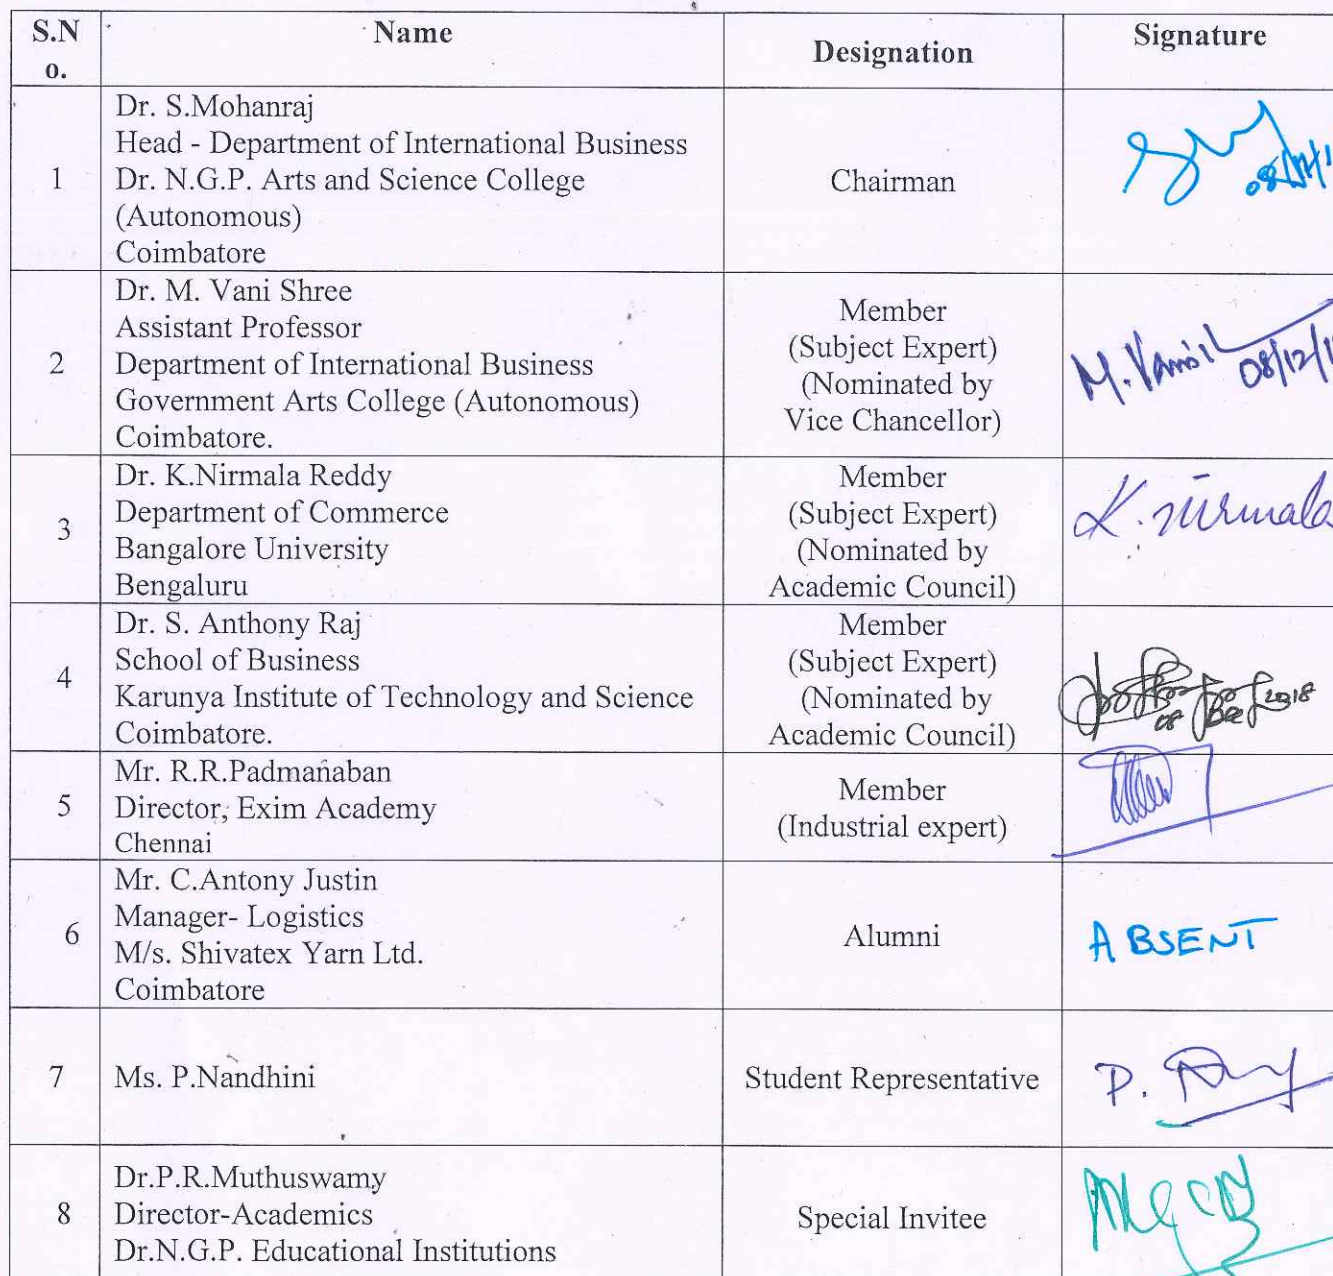 S.N
o.
Name
Designation
Signature
1
Dr. S.Mohanraj
Head - Department of International Business
Dr. N.G.P. Arts and Science College
(Autonomous)
Coimbatore
Chairman
2
Dr. M. Vani Shree
Assistant Professor
Department of International Business
Government Arts College (Autonomous)
Coimbatore.
Member
(Subject Expert)
(Nominated by
Vice Chancellor)
M. Vanish
08/12/1
3
Dr. K.Nirmala Reddy
Department of Commerce
Bangalore University
Bengaluru
Member
(Subject Expert)
(Nominated by
Academic Council)
K. Nirmala
4
Dr. S. Anthony Raj
School of Business
Karunya Institute of Technology and Science
Coimbatore.
Member
(Subject Expert)
(Nominated by
Academic Council)
08 Dec 2018
5
Mr. R.R.Padmanaban
Director, Exim Academy
Chennai
Member
(Industrial expert)
6
Mr. C.Antony Justin
Manager- Logistics
M/s. Shivatex Yarn Ltd.
Coimbatore
Alumni
ABSENT
7
Ms. P.Nandhini
Student Representative
P.
8
Dr.P.R.Muthuswamy
Director-Academics
Dr.N.G.P. Educational Institutions
Special Invitee